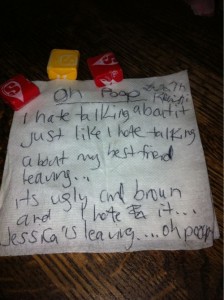 Oh Poop
I hate talking about it
just like I hate talking
about my best friend
leaving...
its ugly and brown
and I hate it...
Jessica's leaving.... oh poop